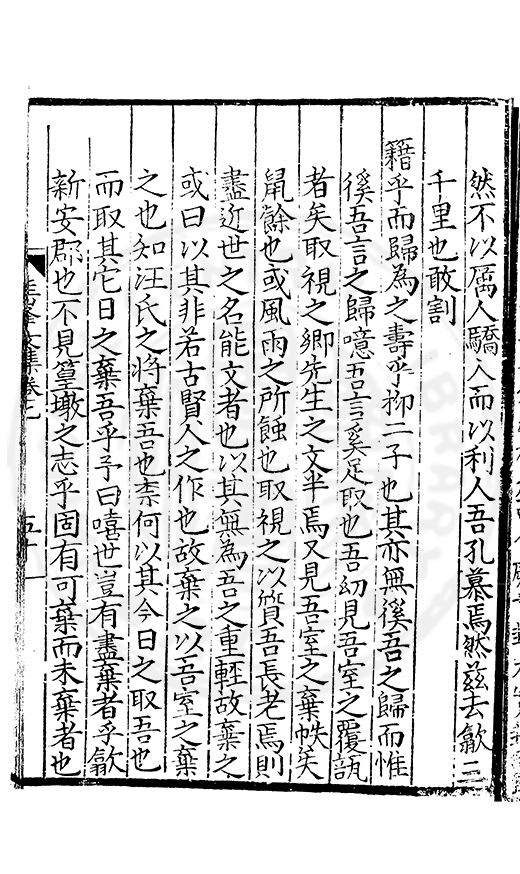 然不以厲人驕人而以利人吾孔慕焉然茲去歙二
千里也敢割
籍乎而歸為之壽乎抑二子也其亦無徯吾之歸而惟
徯吾言之歸噫吾言奚足取也吾幼見吾室之覆瓿
者矣取視之卿先生之文半焉又見吾室之棄帙矣
鼠餘也或風雨之所蝕也取視之以質吾長老焉則
盡近世之名能文者也以其無為吾之重輕故棄之
或曰以其非若古賢人之作也故棄之以吾室之棄
之也知汪氏之將棄吾也柰何以其今日之取吾也
而取其它日之棄吾乎予曰嘻世豈有盡棄者乎歙
新安郡也不見篁墩之志乎固有可棄而未棄者也
文集卷
五十一